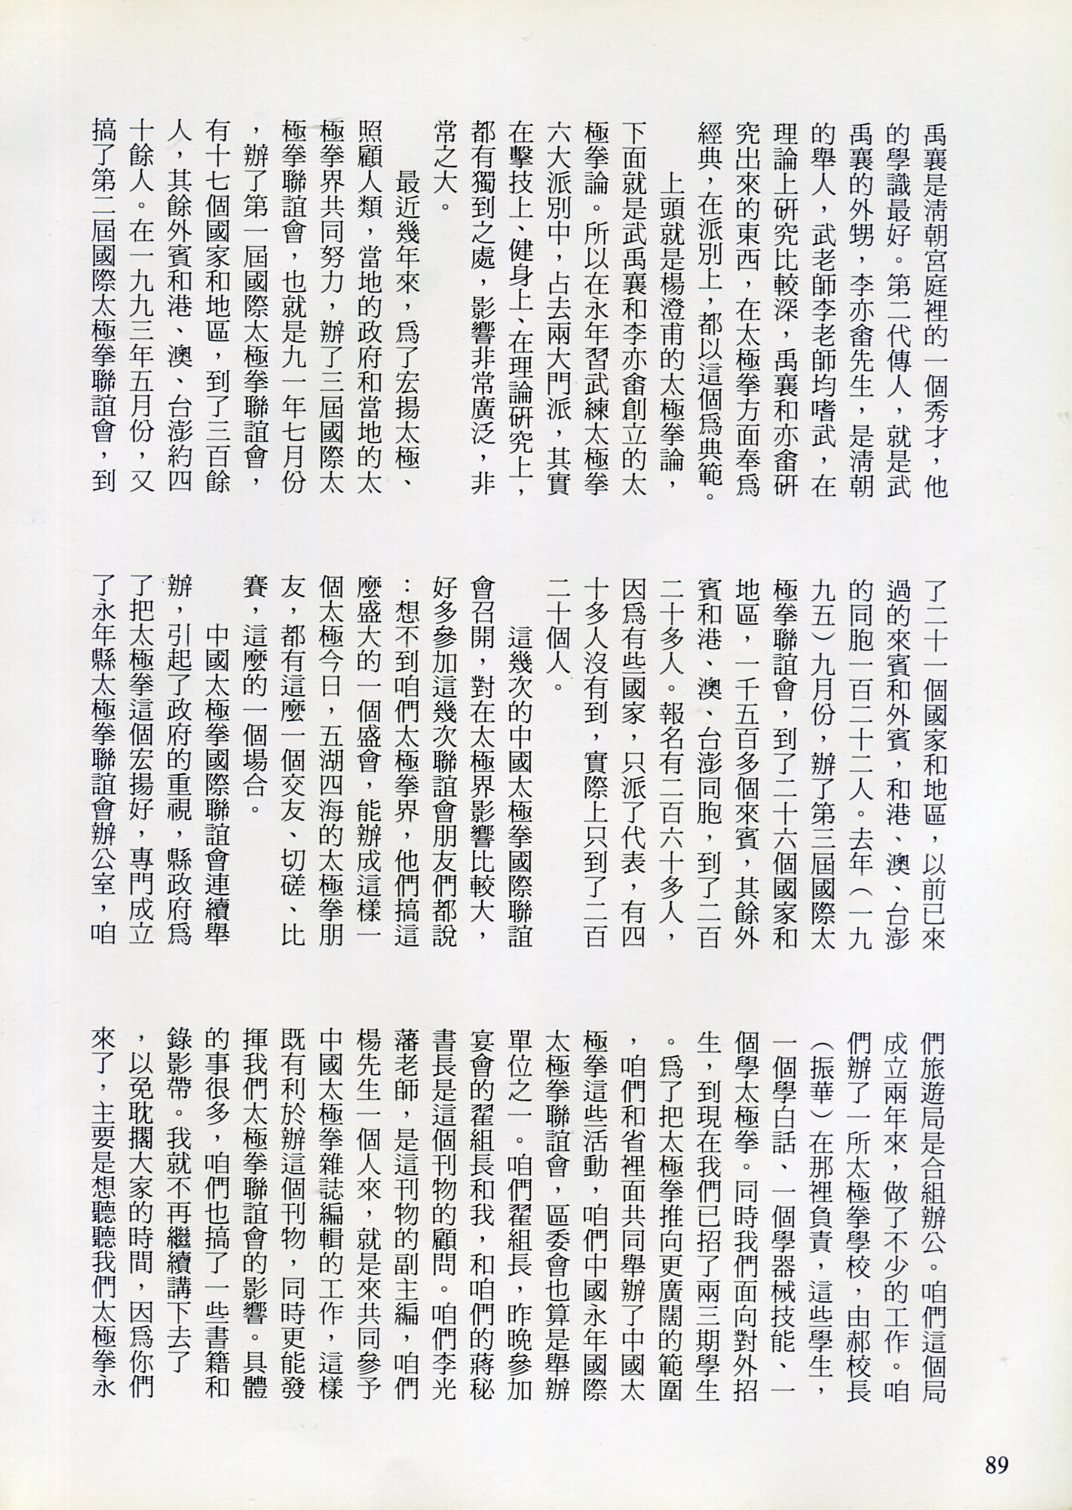 禹襄是淸朝宮庭裡的一個秀才，他
的學識最好。第二代傳人，就是武
禹襄的外甥，李亦畬先生，是淸朝
的舉人，武老師李老師均嗜武，在
理論上研究比較深，禹襄和亦畬研
究出來的東西，在太極拳方面奉爲
經典，在派別上，都以這個爲典範。
上頭就是楊澄甫的太極拳論，
下面就是武禹襄和李亦畬創立的太
極拳論。所以在永年習武練太極拳
六大派別中，占去兩大門派，其實
在擊技上、健身上、在理論研究上，
都有獨到之處，影響非常廣泛，非
常之大。
最近幾年來，爲了宏揚太極、
照顧人類，當地的政府和當地的太
極拳界共同努力，辦了三屆國際太
極拳聯誼會，也就是九一年七月份
，辦了第一屆國際太極拳聯誼會，
有十七個國家和地區，到了三百餘
人，其餘外賓和港、澳、台澎約四
十餘人。在一九九三年五月份，又
搞了第二屆國際太極拳聯誼會，到
了二十一個國家和地區，以前已來
過的來賓和外賓，和港、澳、台澎
的同胞一百二十二人。去年（一九
九五）九月份，辦了第三屆國際太
極拳聯誼會，到了二十六個國家和
地區，一千五百多個來賓，其餘外
賓和港、澳、台澎同胞，到了二百
二十多人。報名有二百六十多人，
因爲有些國家，只派了代表，有四
十多人沒有到，實際上只到了二百
二十個人。
這幾次的中國太極拳國際聯誼
會召開，對在太極界影響比較大，
好多參加這幾次聯誼會朋友們都說
：想不到咱們太極拳界，他們搞這
麼盛大的一個盛會，能辦成這樣一
個太極今日，五湖四海的太極拳朋
友，都有這麼一個交友、切磋、比
賽，這麼的一個場合。
中國太極拳國際聯誼會連續舉
辦，引起了政府的重視，縣政府爲
了把太極拳這個宏揚好，專門成立
了永年縣太極拳聯誼會辦公室，咱
們旅遊局是合組辦公。咱們這個局
成立兩年來，做了不少的工作。咱
們辦了一所太極拳學校，由郝校長
（振華）在那裡負責，這些學生，
一個學白話、一個學器械技能、一
個學太極拳。同時我們面向對外招
生，到現在我們已招了兩三期學生
。爲了把太極拳推向更廣闊的範圍
，咱們和省裡面共同舉辦了中國太
極拳這些活動，咱們中國永年國際
太極拳聯誼會，區委會也算是舉辦
單位之一。咱們翟組長，昨晚參加
宴會的翟組長和我，和咱們的蔣秘
書長是這個刊物的顧問。咱們李光
藩老師，是這刊物的副主編，咱們
楊先生一個人來，就是來共同參予
中國太極拳雜誌編輯的工作，這樣
既有利於辦這個刊物，同時更能發
揮我們太極拳聯誼會的影響。具體
的事很多，咱們也搞了一些書籍和
錄影帶。我就不再繼續講下去了
，以免耽擱大家的時間，因爲你們
來了，主要是想聽聽我們太極拳永
89